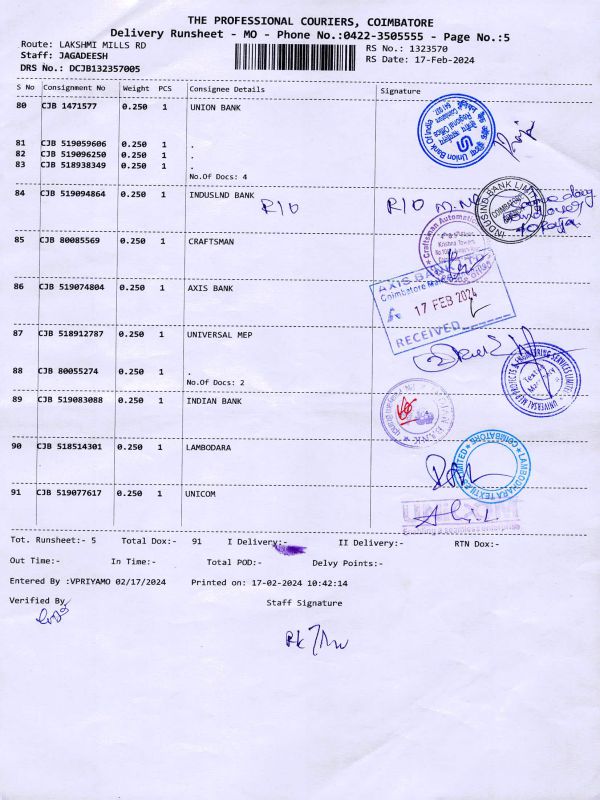 THE PROFESSIONAL COURIERS, COIMBATORE
Delivery Runsheet - MO - Phone No.:0422-3505555 - Page No.:5
Route: LAKSHMI MILLS RD
RS No.: 1323570
Staff: JAGADEESH
RS Date: 17-Feb-2024
DRS No.: DCJB132357005
S No Consignment No Weight PCS Consignee Details Signature
80 CJB 1471577 0.250 1 UNION BANK
Union Bank Of India
Regional Office
81 CJB 519059606 0.250 1 .
82 CJB 519096250 0.250 1 .
83 CJB 518938349 0.250 1 .
No.Of Docs: 4
84 CJB 519094864 0.250 1 INDUSLND BANK
R/O R/O
INDUSIND BANK LIMITED
COIMBATORE
85 CJB 80085569 0.250 1 CRAFTSMAN
Craftsman Automation
Krishna Towers
86 CJB 519074804 0.250 1 AXIS BANK
AXIS BANK LTD
Coimbatore Main
17 FEB 2024
RECEIVED
87 CJB 518912787 0.250 1 UNIVERSAL MEP
88 CJB 80055274 0.250 1 .
No.Of Docs: 2
UNIVERSAL MEP PROJECTS & ENGINEERING SERVICES LIMITED
89 CJB 519083088 0.250 1 INDIAN BANK
90 CJB 518514301 0.250 1 LAMBODARA
LAMBODHARA TEXTILES LIMITED
COIMBATORE
91 CJB 519077617 0.250 1 UNICOM
Tot. Runsheet:- 5 Total Dox:- 91 I Delivery:- II Delivery:- RTN Dox:-
Out Time:- In Time:- Total POD:- Delvy Points:-
Entered By :VPRIYAMO 02/17/2024 Printed on: 17-02-2024 10:42:14
Verified By Staff Signature